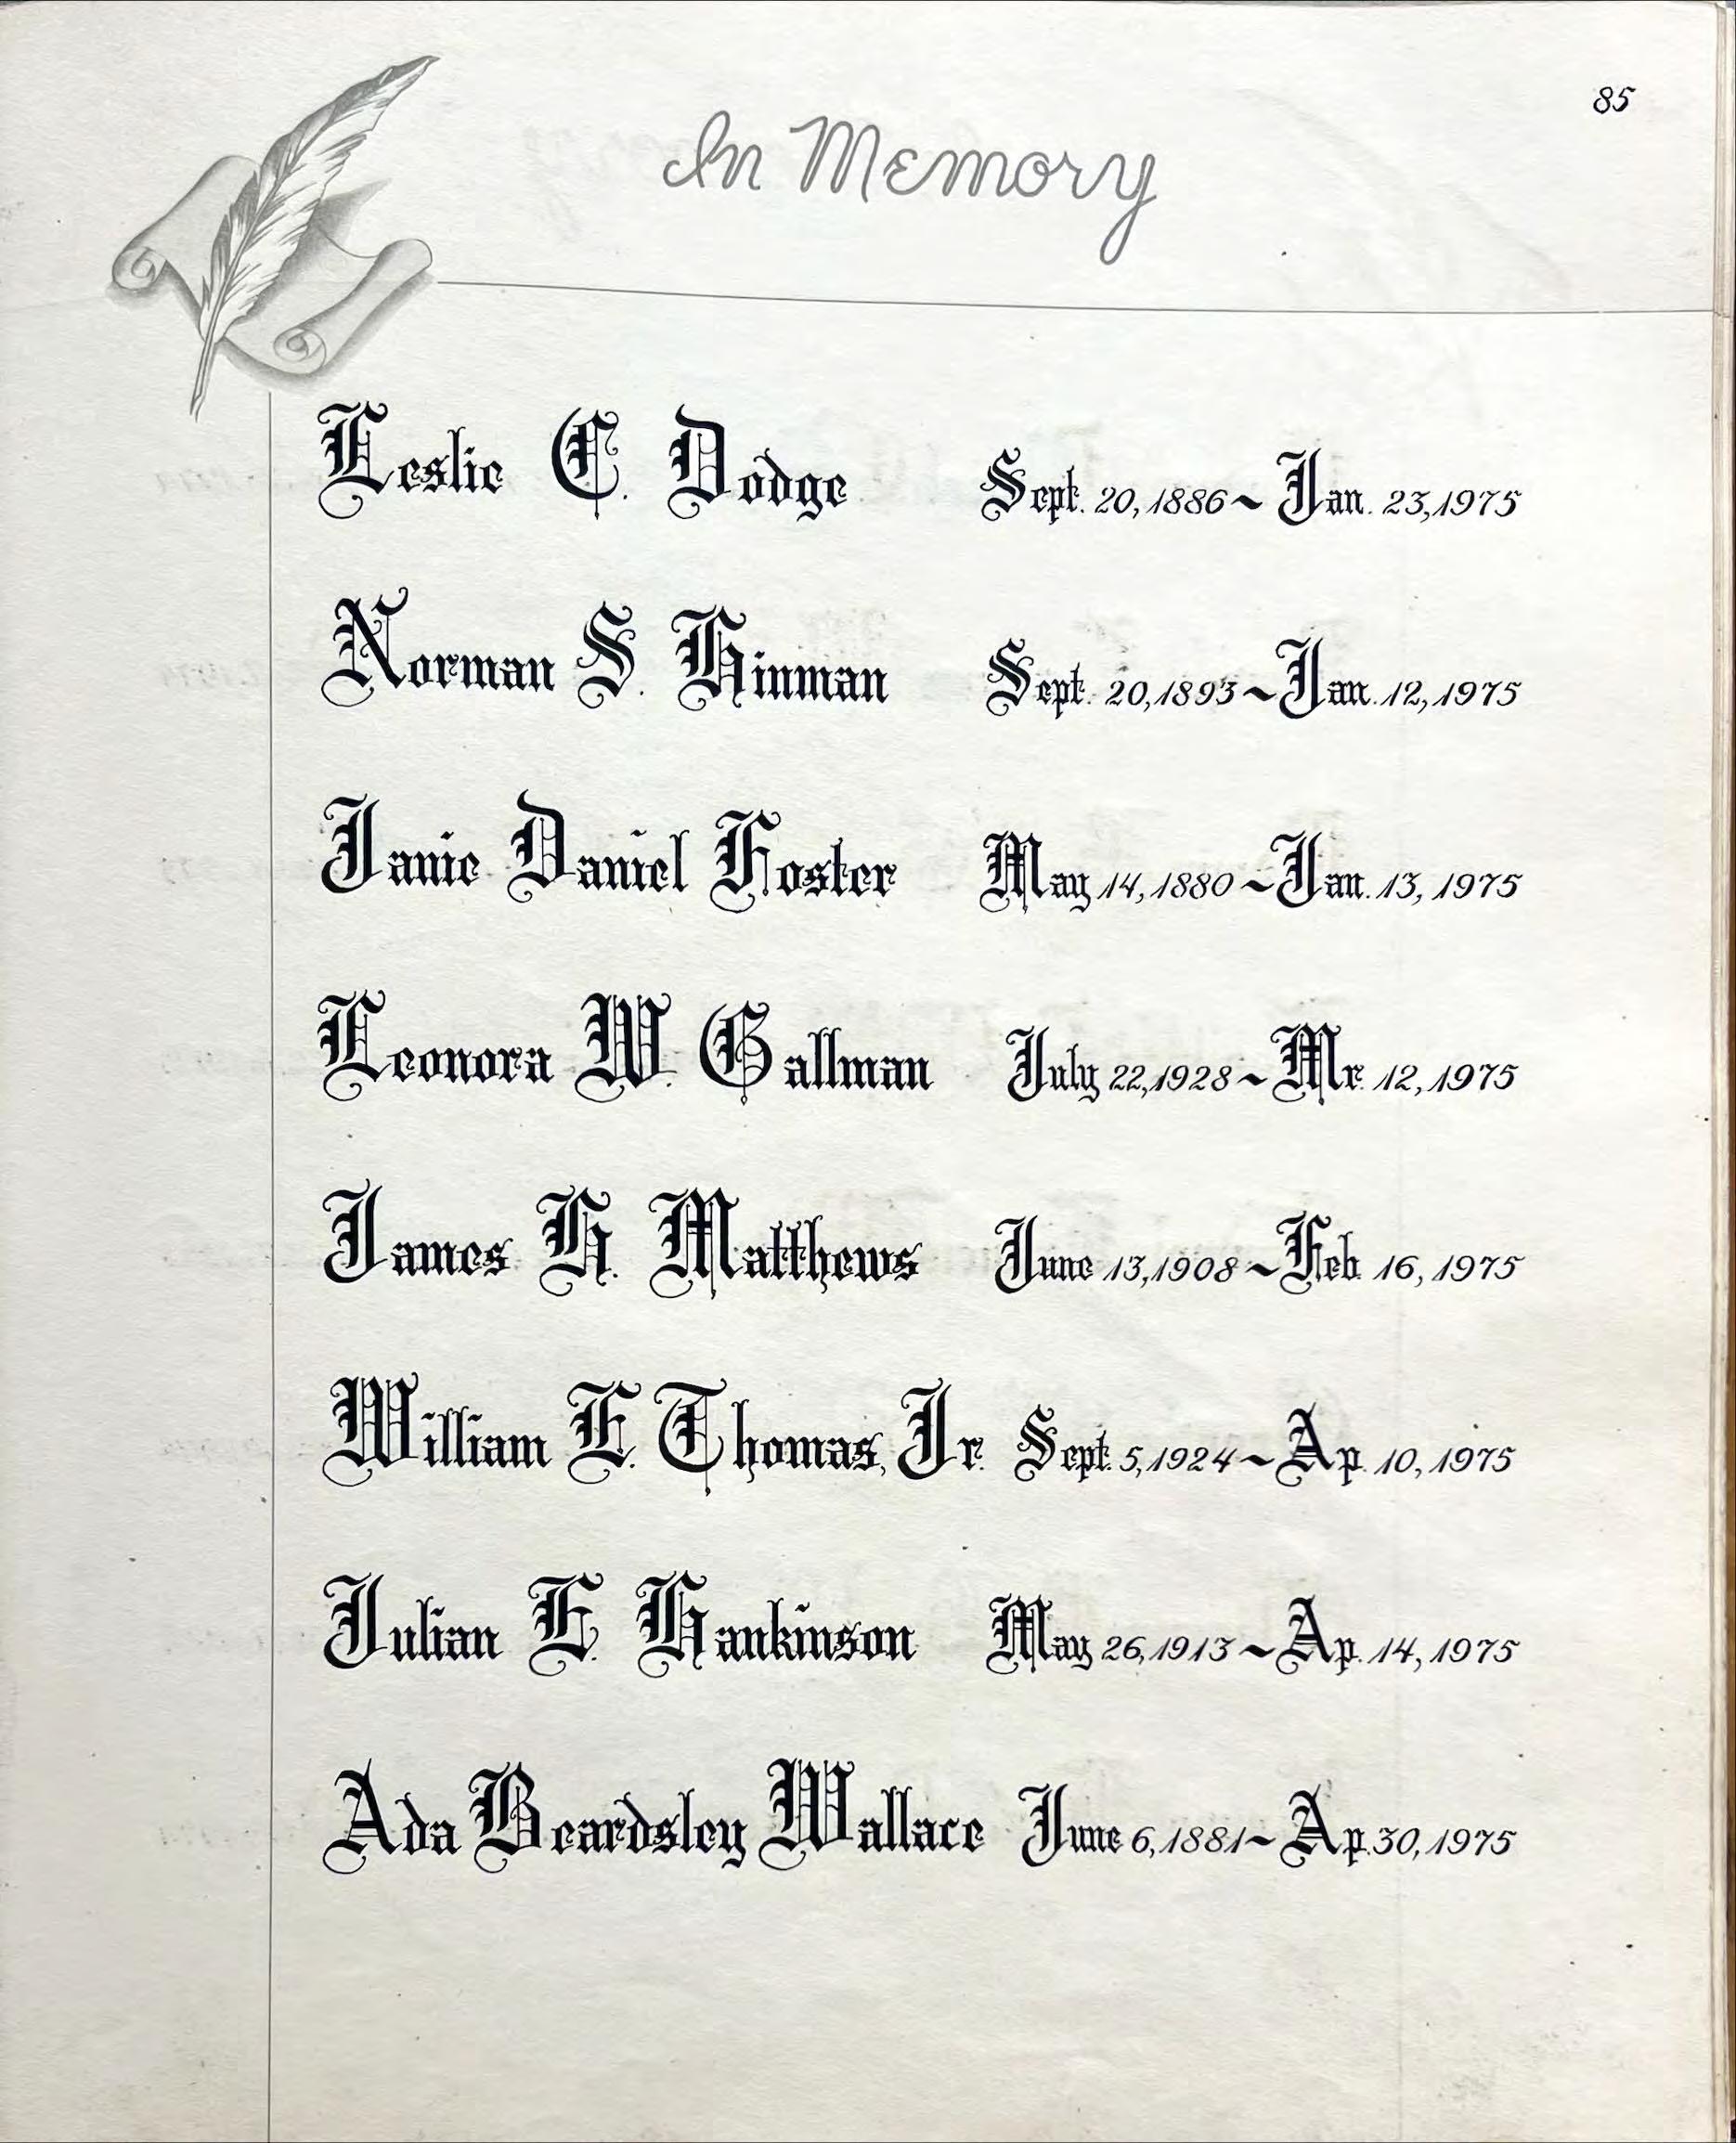 85
In Memory
Leslie C. Dodge Sept. 20, 1886 ~ Jan. 23, 1975
Norman S. Hinman Sept. 20, 1893 ~ Jan. 12, 1975
Janie Daniel Foster May 14, 1880 ~ Jan. 13, 1975
Leonora W. Gallman July 22, 1928 ~ Mr. 12, 1975
James H. Matthews June 13, 1908 ~ Feb. 16, 1975
William E. Thomas, Jr. Sept. 5, 1924 ~ Ap. 10, 1975
Julian E. Hankinson May 26, 1913 ~ Ap. 14, 1975
Ada Beardsley Wallace June 6, 1881 ~ Ap. 30, 1975